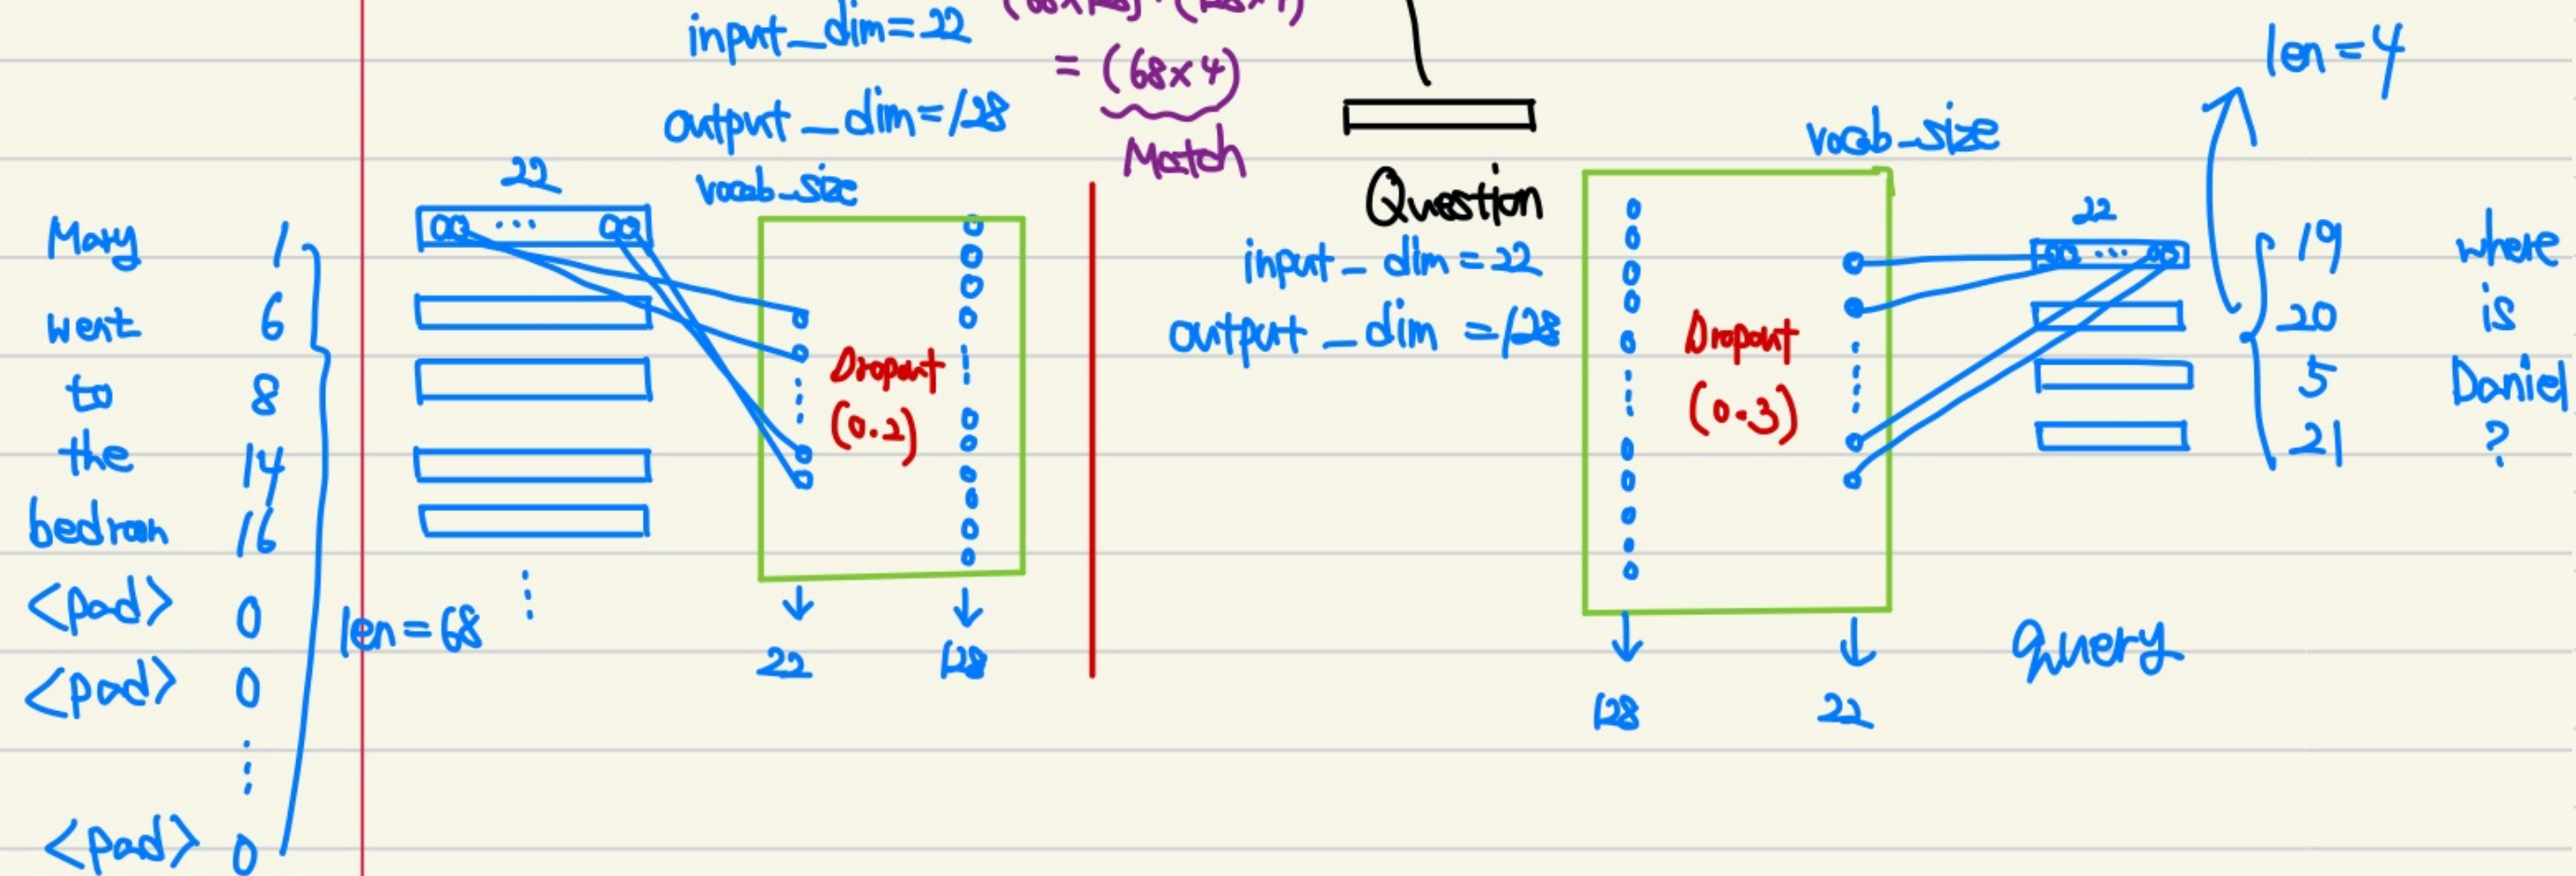 input_dim=22
(68x128)·(128x4)
= (68x4)
Match
output_dim=128
vocab_size
22
Mary 1
went 6
to 8
the 14
bedroom 16
<pad> 0
<pad> 0
<pad> 0
len=68
Dropout
(0.2)
22
128
Question
input_dim=22
output_dim=128
vocab_size
Dropout
(0.3)
128
22
query
len=4
22
19 where
20 is
5 Daniel
21 ?